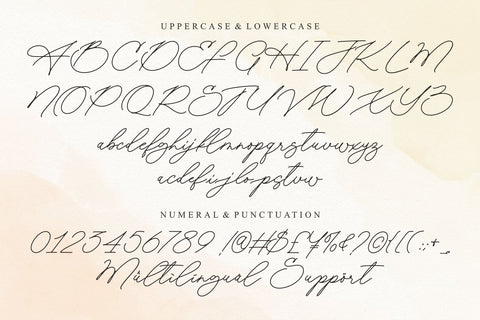 UPPERCASE & LOWERCASE
ABCDEFGHIJKLM
NOPQRSTUVWXYZ
abcdefghijklmnopqrstuvwxyz
acdefijlopstuw
NUMERAL & PUNCTUATION
0123456789 !@#$£¥%&?©{[( :;+_
Multilingual Support